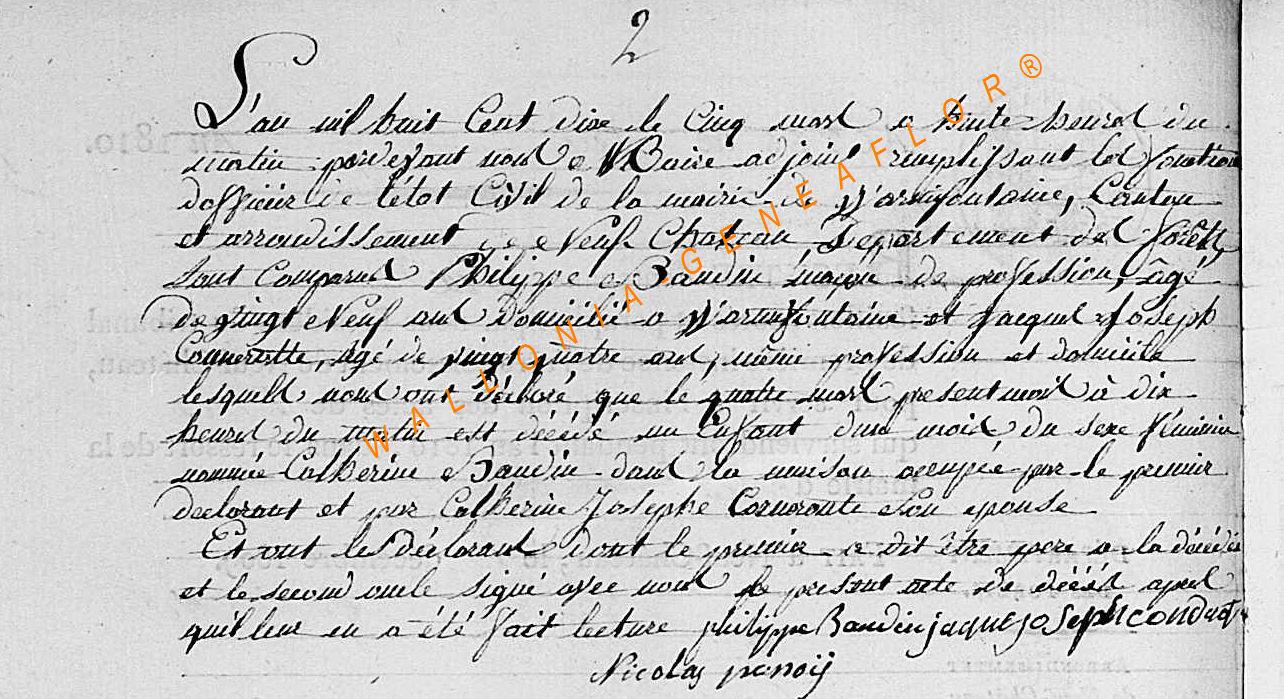 2
L'an mil huit Cent dix le Cinq mars a huit heures du
matin pardevant nous Maire adjoint remplissant les fonctions
d'officier de l'état Civil de la mairie de Warmifontaine, Canton
et arrondissement de Neuf Chateau, Departement des forêts,
sont Comparus Philippe Baudin maçon de profession, âgé
de vingt Neuf ans Domicilié a Warmifontaine et Jacques Joseph
agé de vingt quatre ans, même profession et domicile
lesquels nous ont déclaré que le quatre mars present mois à dix
heures du matin est décédé un Enfant d'un mois du sexe féminin
nommée Catherine Baudin dans la maison occupée par le premier
declarant et par Catherine Josephe son epouse
Et ont les déclarans dont le premier a dit être pere a la décédée
et le second oncle signé avec nous le present acte de décés après
qu'il leur en a été fait lecture philippe Baudin jaque joseph
Nicolas
WALLONIA GENEAFLOR ®
1810.